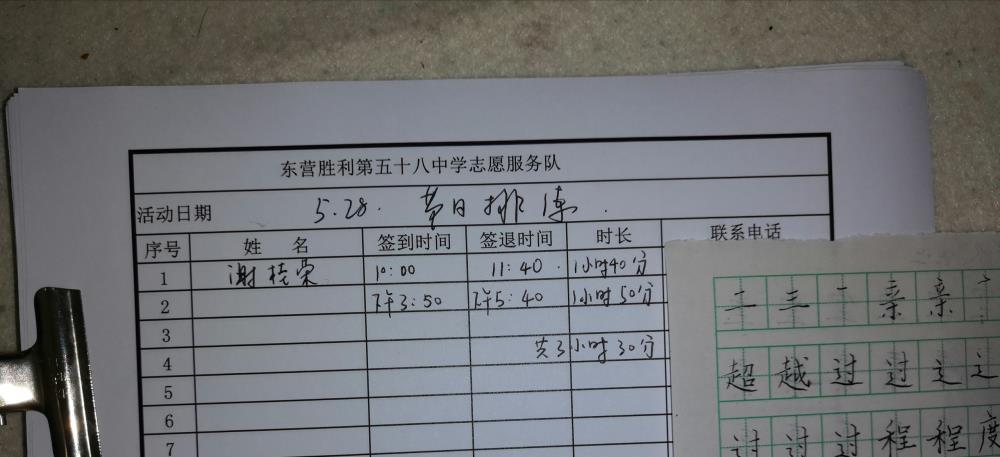 东营胜利第五十八中学志愿服务队
活动日期 5.28. 节日排练.
序号 姓名 签到时间 签退时间 时长 联系电话
1 谢桂荣 10:00 11:40. 1小时40分
2 下午3:50 下午5:40 1小时50分
3
4 共3小时30分
5
6
7
二三一亲亲
超越过过辶
过过过程程度